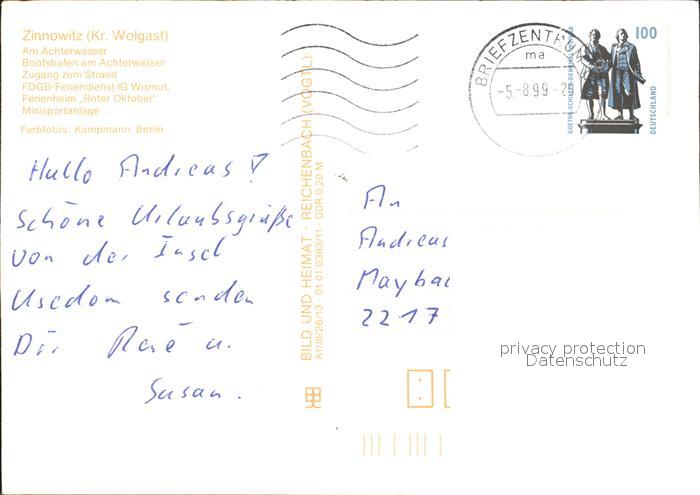 Zinnowitz (Kr. Wolgast)
Am Achterwasser
Bootshafen am Achterwasser
Zugang zum Strand
FDGB-Feriendienst·IG Wismut,
Ferienheim „Roter Oktober"
Minisportanlage
Farbfotos: Kampmann, Berlin
Hallo Andreas!
Schöne Urlaubsgrüße
von der Insel
Usedom senden
Dir René u.
Susan.
BILD UND HEIMAT · REICHENBACH (VOGTL)
A1/III/26/13 · 01 01 0383/11 · DDR 0,20 M
BRIEFZENTRUM
ma
-5.-8.99-20
GOETHE-SCHILLER-DENKMAL
100
DEUTSCHLAND
An
Andreas
Maybac
2217
privacy protection
Datenschutz